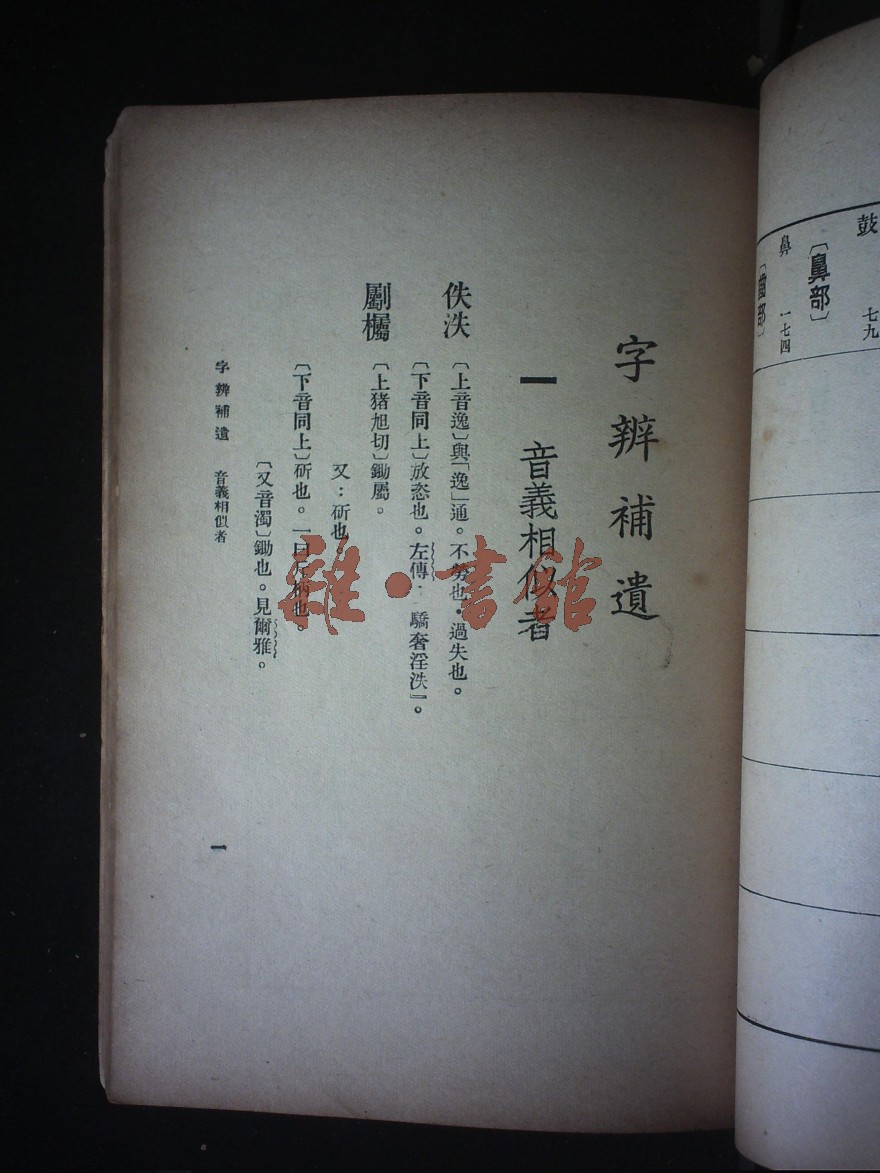 鼓 七九
〔鼻部〕
鼻 一七四
〔齒部〕
字辨補遺
一 音義相似者
佚泆
〔上音逸〕與「逸」通。不勞也。過失也。
〔下音同上〕放恣也。左傳：「驕奢淫泆」。
劚欘
〔上猪旭切〕鋤屬。
又：斫也
〔下音同上〕斫也。一曰斤柄也。
〔又音濁〕鋤也。見爾雅。
字辨補遺 音義相似者
一
雜·書館